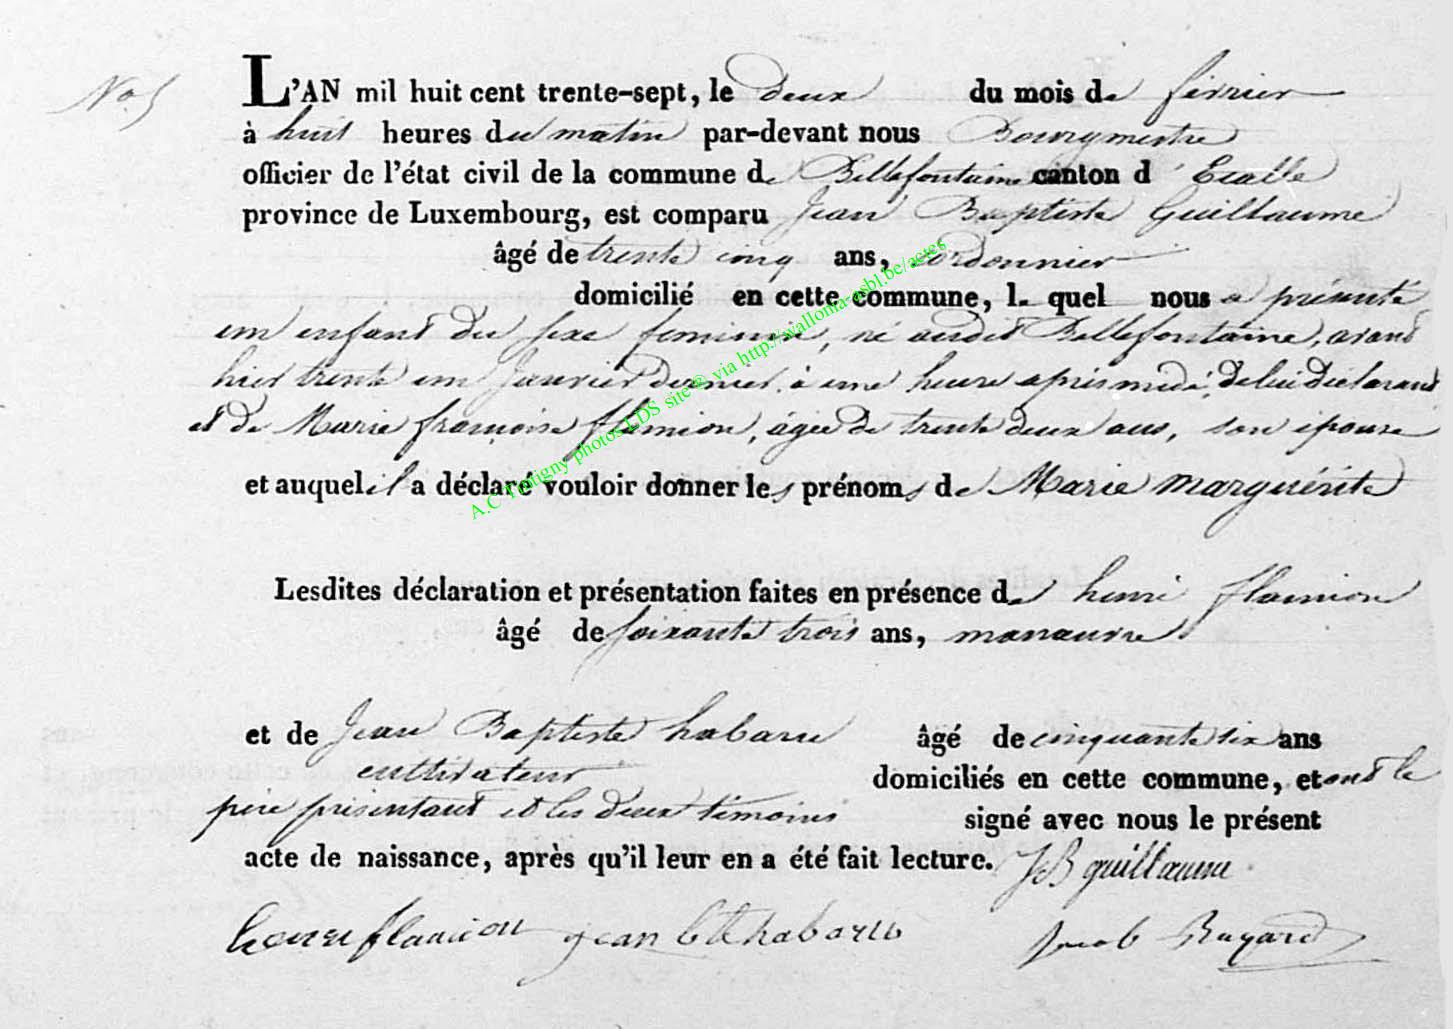 No 5
L'AN mil huit cent trente-sept, le deux du mois de février
à huit heures du matin par-devant nous Bourgmestre
officier de l'état civil de la commune de Bellefontaine canton d'Etalle
province de Luxembourg, est comparu Jean Baptiste Guillaume
âgé de trente cinq ans, cordonnier
domicilié en cette commune, le quel nous a présenté
un enfant du sexe feminin, né audit Bellefontaine, avant
hier trente un Janvier dernier, à une heure après midi, de lui déclarant
et de Marie françoise flamion, âgée de trente deux ans, son épouse
et auquel il a déclaré vouloir donner les prénoms de Marie Marguérite
Lesdites déclaration et présentation faites en présence de henri flamion
âgé de soixante trois ans, manœuvre
et de Jean Baptiste habaru âgé de cinquante six ans
cultivateur domiciliés en cette commune, et ont le
père présentant et les deux témoins signé avec nous le présent
acte de naissance, après qu'il leur en a été fait lecture. JB guillaume
flamion jean bte habaru Jacob Bayard
A.C Tintigny photos LDS site® via http://wallonia-asbl.be/actes